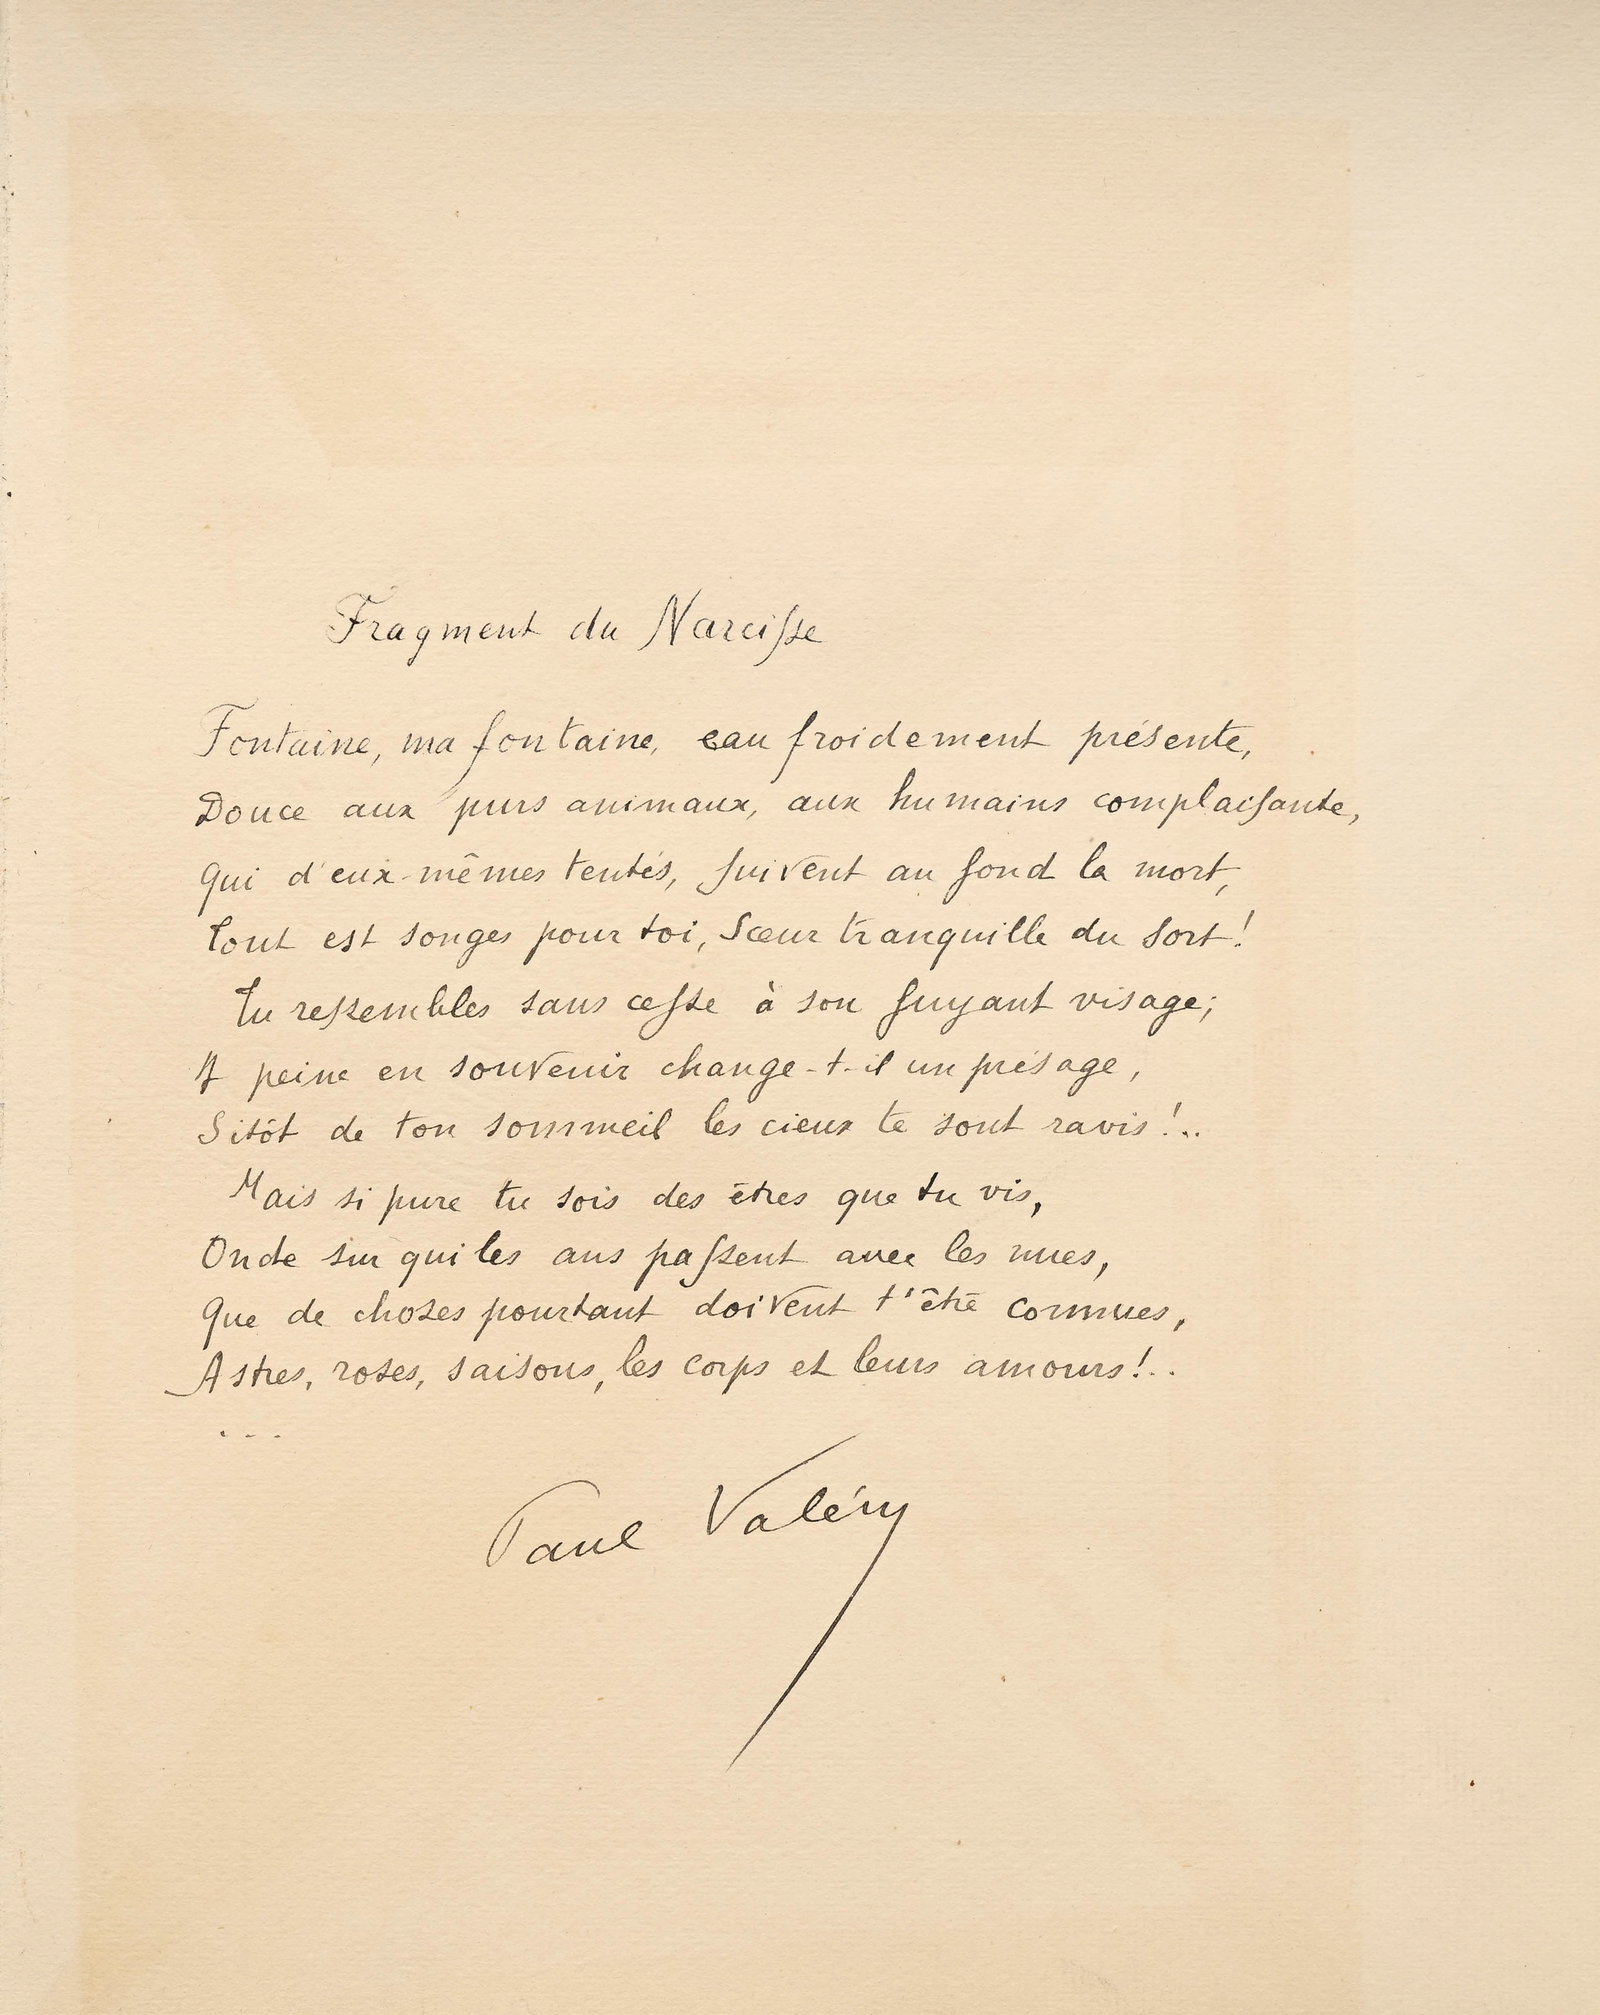 Fragment du Narcisse
Fontaine, ma fontaine, eau froidement présente,
Douce aux purs animaux, aux humains complaisante,
Qui d'eux-mêmes tentés, suivent au fond la mort,
Tout est songes pour toi, Sœur tranquille du Sort!
Tu ressembles sans cesse à son fuyant visage;
A peine en souvenir change-t-il un présage,
Sitôt de ton sommeil les cieux te sont ravis!..
Mais si pure tu sois des êtres que tu vis,
Onde sur qui les ans passent avec les nues,
Que de choses pourtant doivent t'être connues,
Astres, roses, saisons, les corps et leurs amours!..
...
Paul Valéry